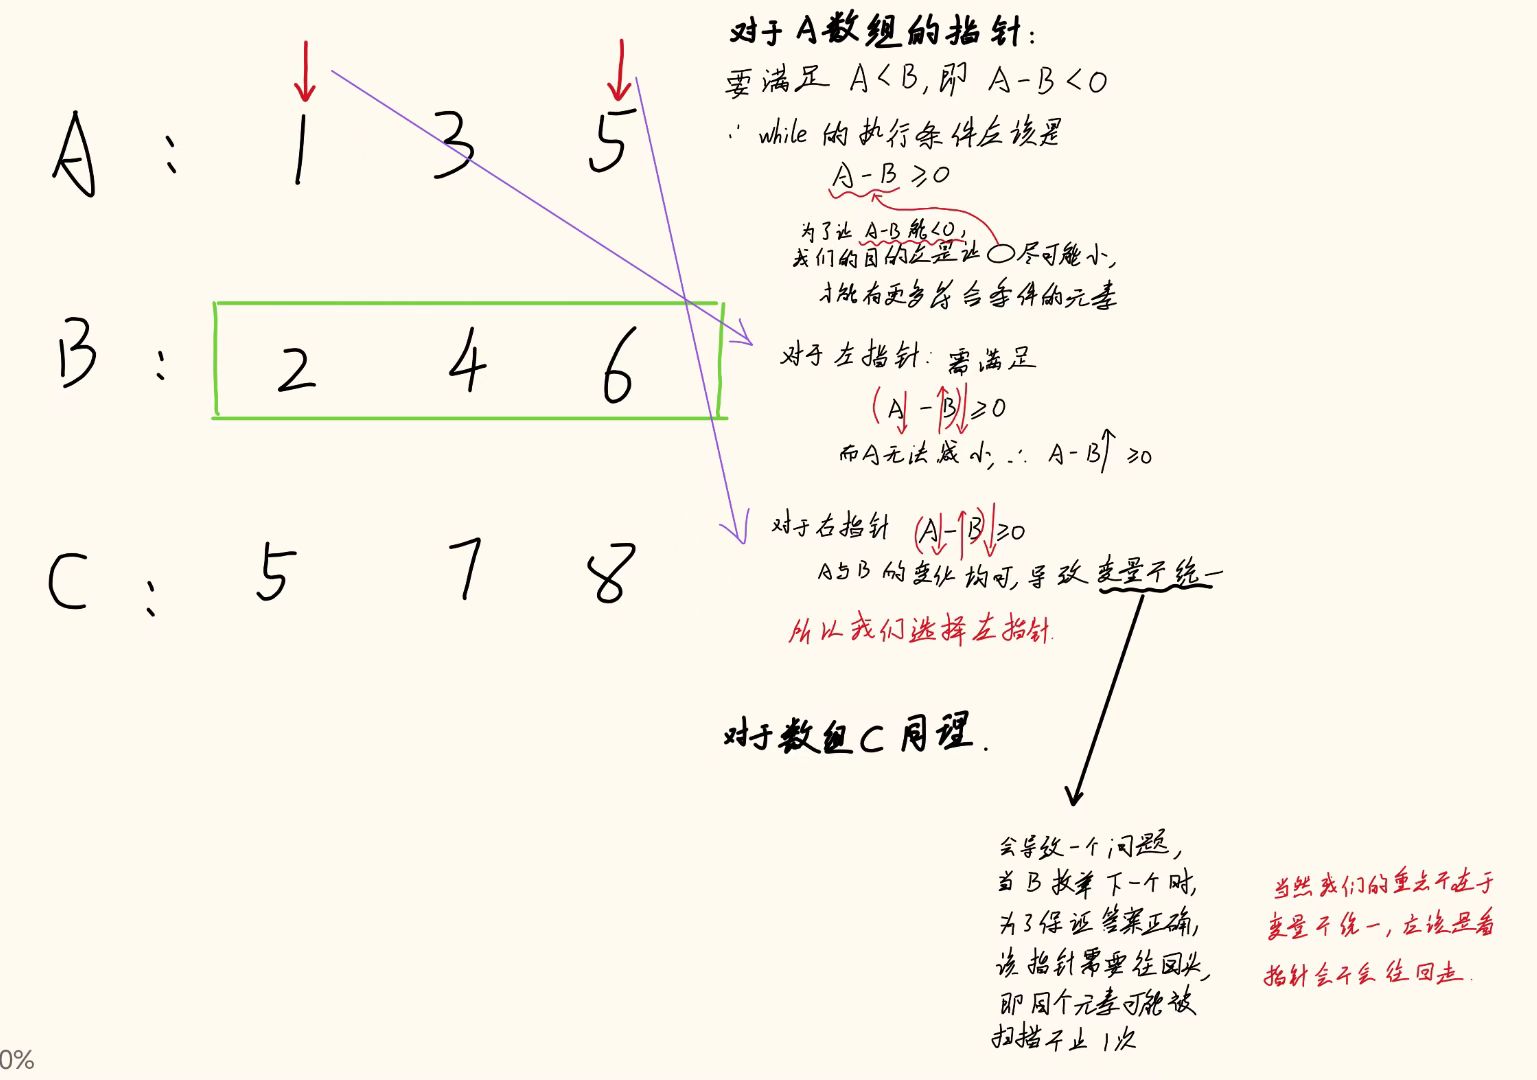 A : 1 3 5
B : 2 4 6
C : 5 7 8
对于A数组的指针:
要满足 A<B,即 A-B<0
∵ while 的执行条件应该是
A-B ≥0
为了让 A-B能<0,
我们的目的应是让 ○尽可能小,
才能有更多符合条件的元素
对于左指针: 需满足
(A↓ - B↑)↓ ≥0
而A无法减小, ∴ A-B↑ ≥0
对于右指针 (A↓-↑B)↓≥0
A与B的变化均可,导致变量不统一
所以我们选择左指针.
对于数组C同理.
会导致一个问题,
当B枚举下一个时,
为了保证答案正确,
该指针需要往回头,
即同个元素可能被
扫描不止1次
当然我们的重点不在于
变量不统一,应该是看
指针会不会往回走.
0%